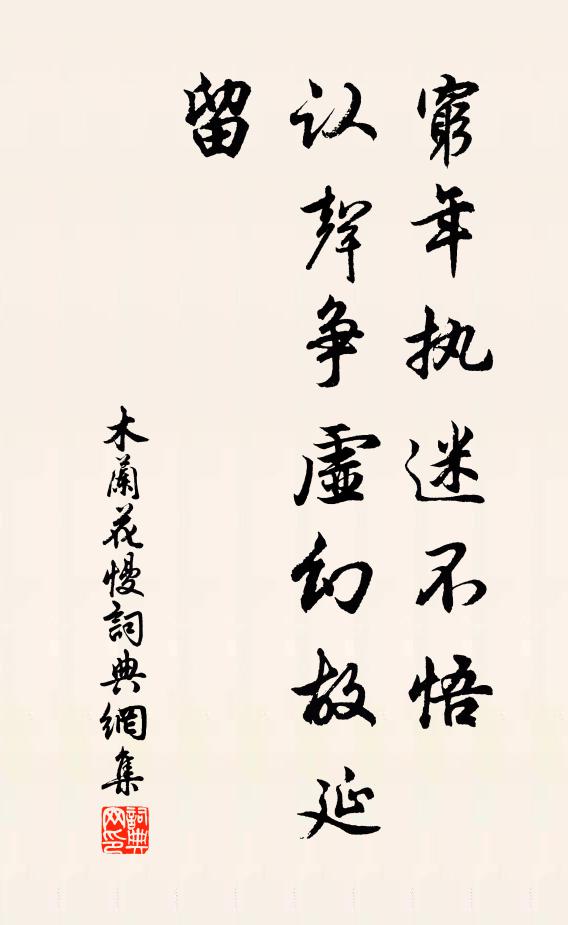 窮年执迷不悟
认聲争虛幻故延
留
木蘭花慢詞典網集
詞典网印